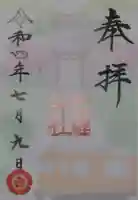 奉拝
令和四年七月九日